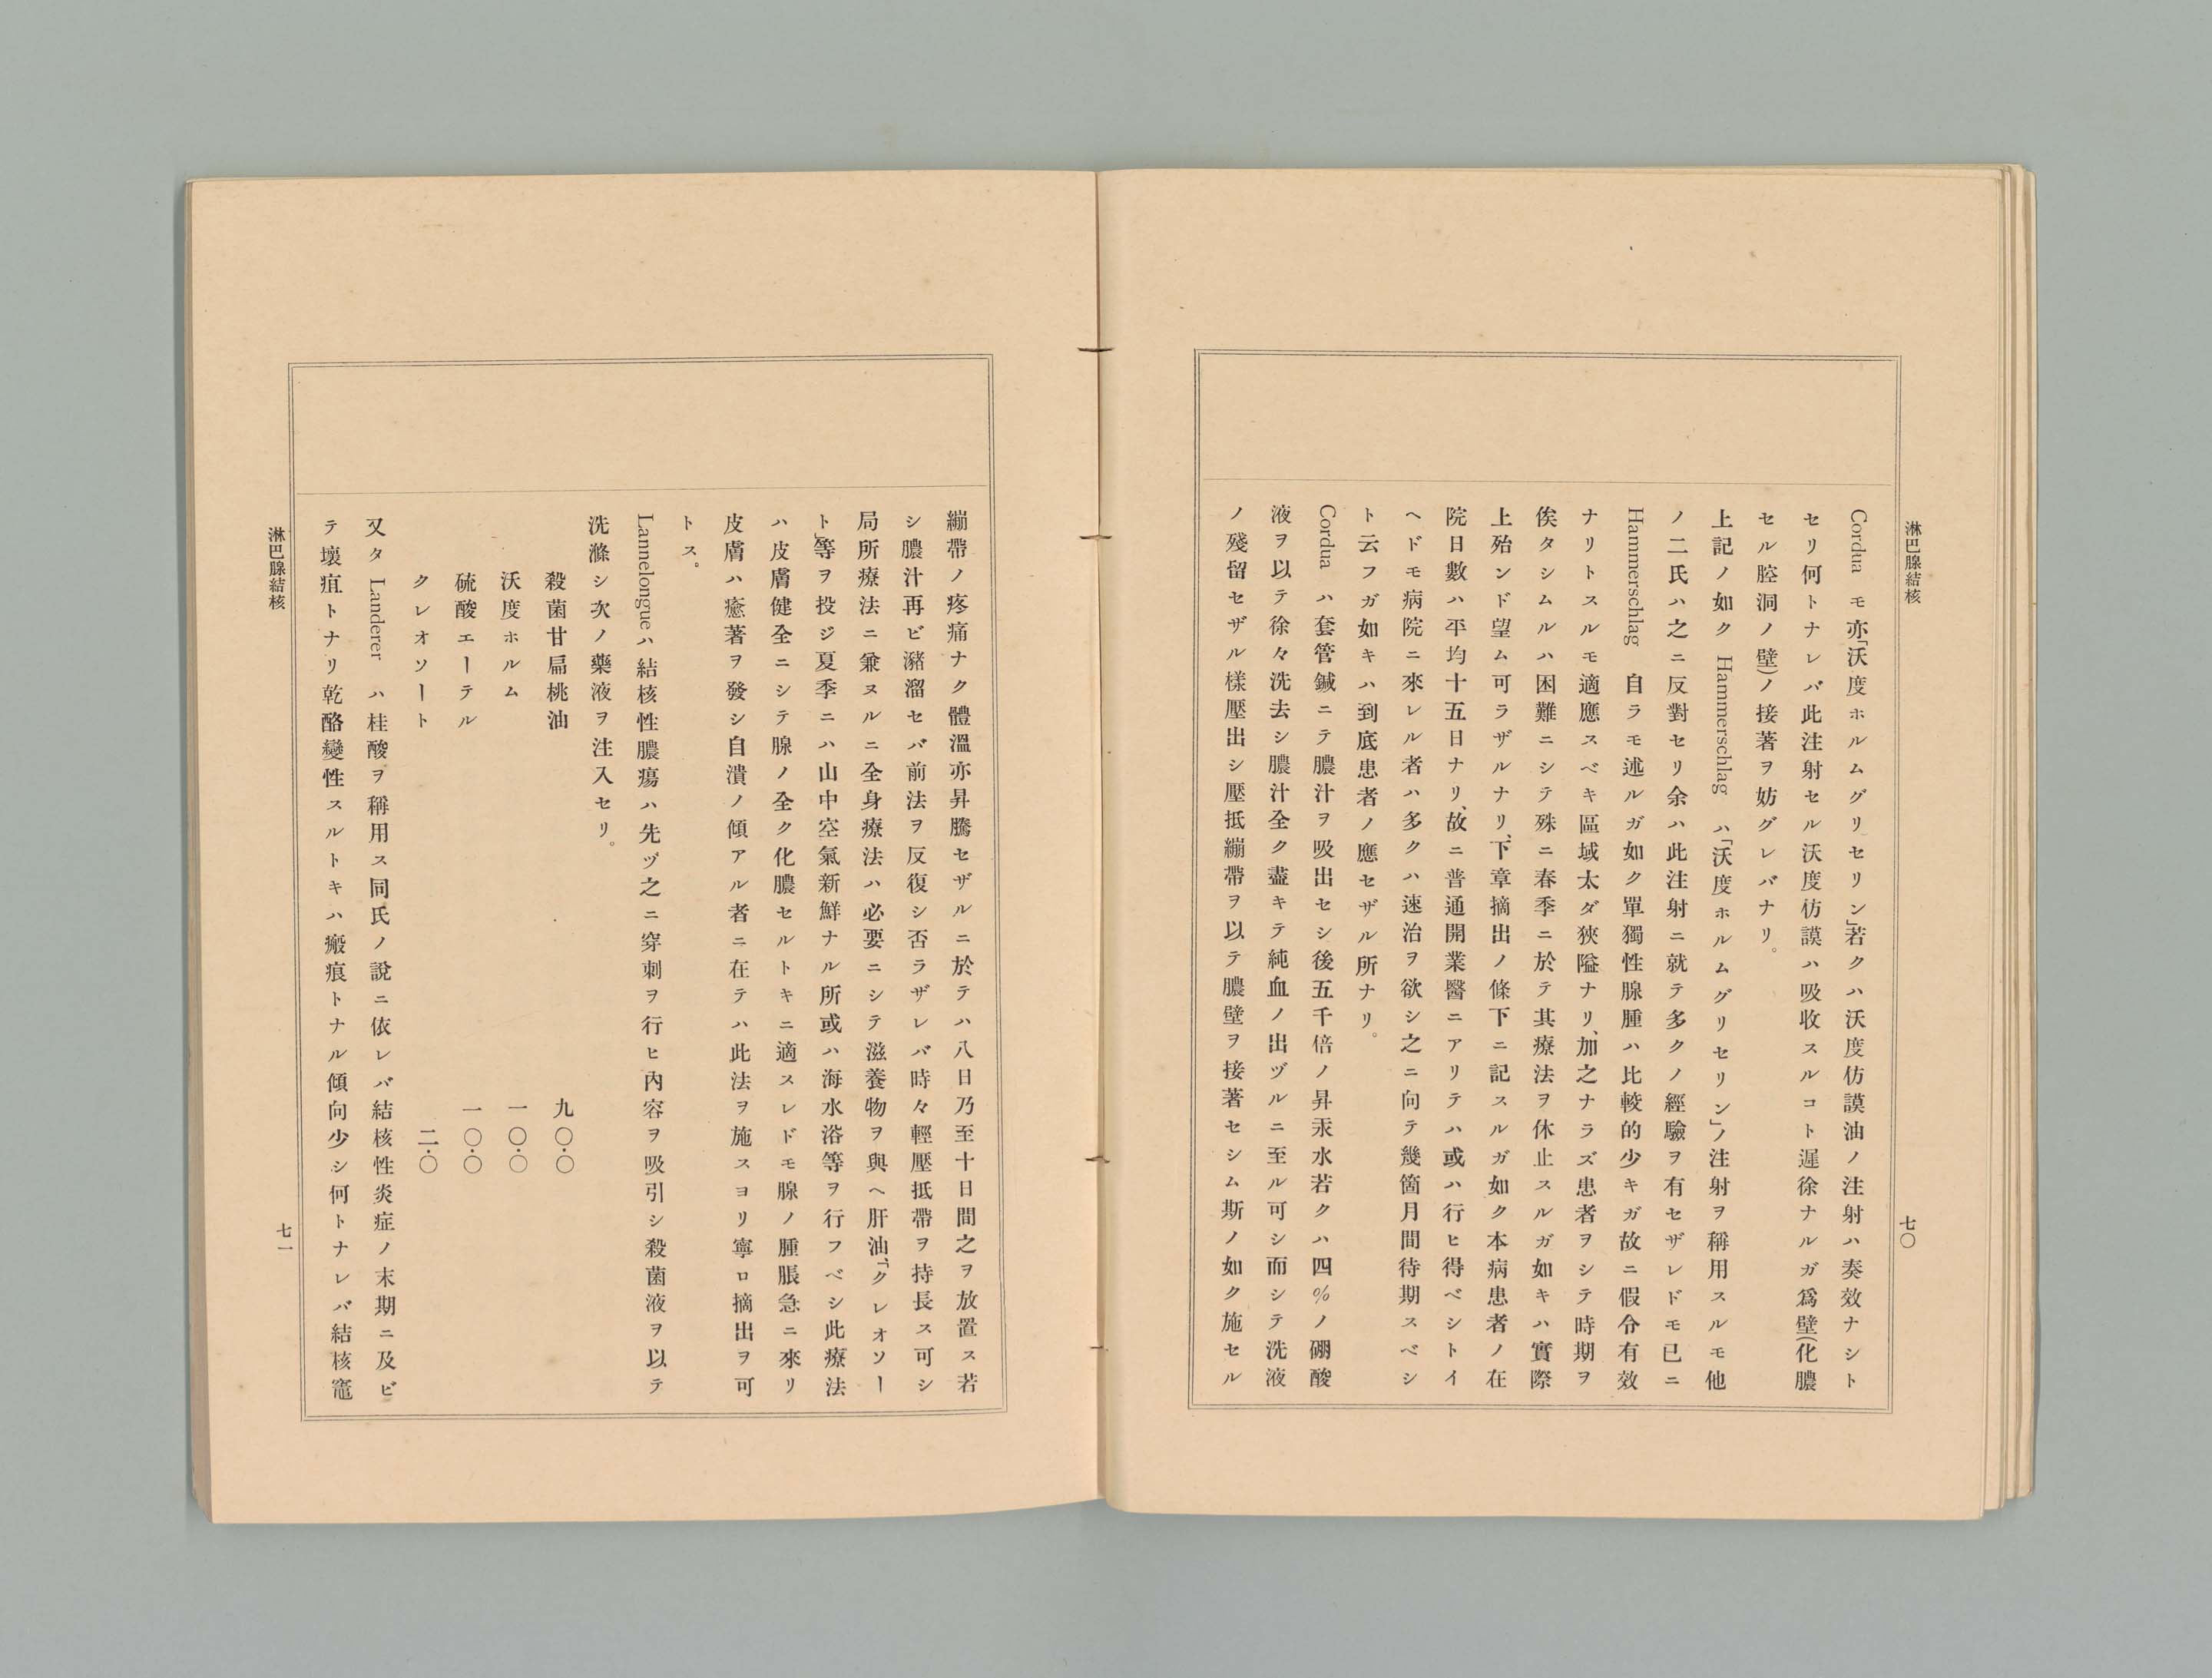 淋巴腺結核
七〇
Cordua モ亦「沃度ホルムグリセリン」若クハ沃度仿謨油ノ注射ハ奏效ナシト
セリ何トナレバ此注射セル沃度仿謨ハ吸收スルコト遲徐ナルガ爲壁(化膿
セル腔洞ノ壁)ノ接著ヲ妨グレバナリ。
上記ノ如ク Hammerschlag ハ「沃度ホルムグリセリン」ノ注射ヲ稱用スルモ他
ノ二氏ハ之ニ反對セリ余ハ此注射ニ就テ多クノ經驗ヲ有セザレドモ已ニ
Hammerschlag 自ラモ述ルガ如ク單獨性腺腫ハ比較的少キガ故ニ假令有效
ナリトスルモ適應スベキ區域太ダ狹隘ナリ、加之ナラズ患者ヲシテ時期ヲ
俟タシムルハ困難ニシテ殊ニ春季ニ於テ其療法ヲ休止スルガ如キハ實際
上殆ンド望ム可ラザルナリ、下章摘出ノ條下ニ記スルガ如ク本病患者ノ在
院日數ハ平均十五日ナリ、故ニ普通開業醫ニアリテハ或ハ行ヒ得ベシトイ
ヘドモ病院ニ來レル者ハ多クハ速治ヲ欲シ之ニ向テ幾箇月間待期スベシ
ト云フガ如キハ到底患者ノ應セザル所ナリ。
Cordua ハ套管鍼ニテ膿汁ヲ吸出セシ後五千倍ノ昇汞水若クハ四%ノ硼酸
液ヲ以テ徐々洗去シ膿汁全ク盡キテ純血ノ出ヅルニ至ル可シ而シテ洗液
ノ殘留セザル樣壓出シ壓抵繃帶ヲ以テ膿壁ヲ接著セシム斯ノ如ク施セル
繃帶ノ疼痛ナク體溫亦昇騰セザルニ於テハ八日乃至十日間之ヲ放置ス若
シ膿汁再ビ瀦溜セバ前法ヲ反復シ否ラザレバ時々輕壓抵帶ヲ持長ス可シ
局所療法ニ兼ヌルニ全身療法ハ必要ニシテ滋養物ヲ與ヘ肝油、「クレオソー
ト」等ヲ投ジ夏季ニハ山中空氣新鮮ナル所或ハ海水浴等ヲ行フベシ此療法
ハ皮膚健全ニシテ腺ノ全ク化膿セルトキニ適スレドモ腺ノ腫脹急ニ來リ
皮膚ハ癒著ヲ發シ自潰ノ傾アル者ニ在テハ此法ヲ施スヨリ寧ロ摘出ヲ可
トス。
Lannelongueハ結核性膿瘍ハ先ヅ之ニ穿刺ヲ行ヒ內容ヲ吸引シ殺菌液ヲ以テ
洗滌シ次ノ藥液ヲ注入セリ。
殺菌甘扁桃油 九〇・〇
沃度ホルム 一〇・〇
硫酸エーテル 一〇・〇
クレオソート 二・〇
又タ Landerer ハ桂酸ヲ稱用ス同氏ノ說ニ依レバ結核性炎症ノ末期ニ及ビ
テ壞疽トナリ乾酪變性スルトキハ瘢痕トナル傾向少シ何トナレバ結核竈
淋巴腺結核
七一